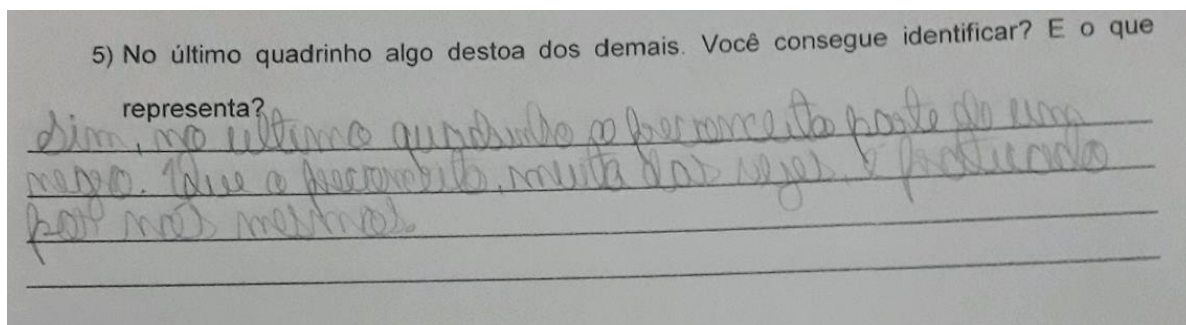 5) No último quadrinho algo destoa dos demais. Você consegue identificar? E o que
representa?
Sim, no ultimo quadrinho o preconceito parte de um
negro. Que o preconceito, muita das vezes, é praticado
por nós mesmos.